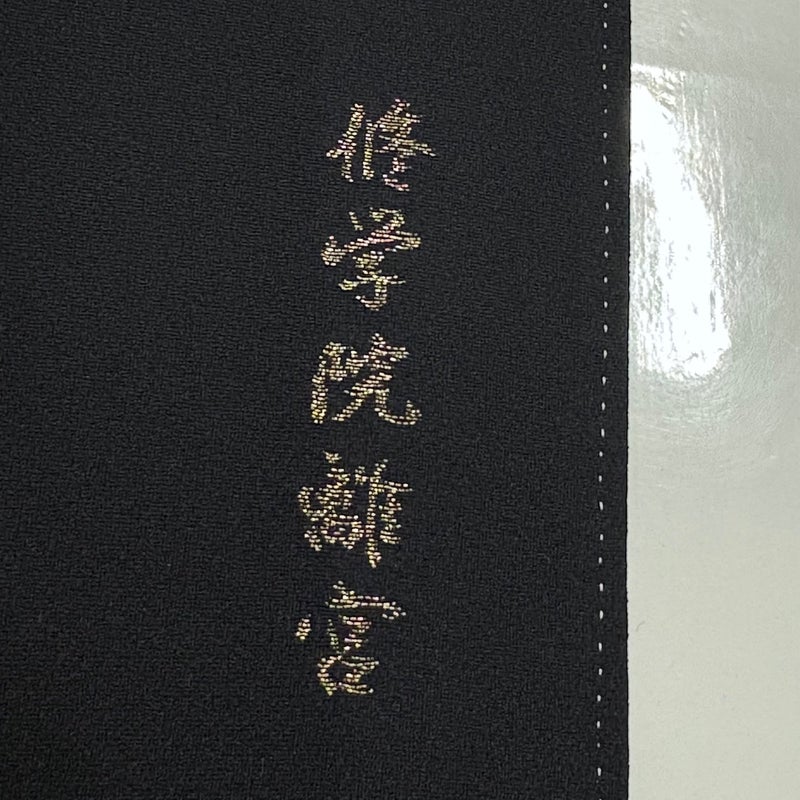 修学院離宮